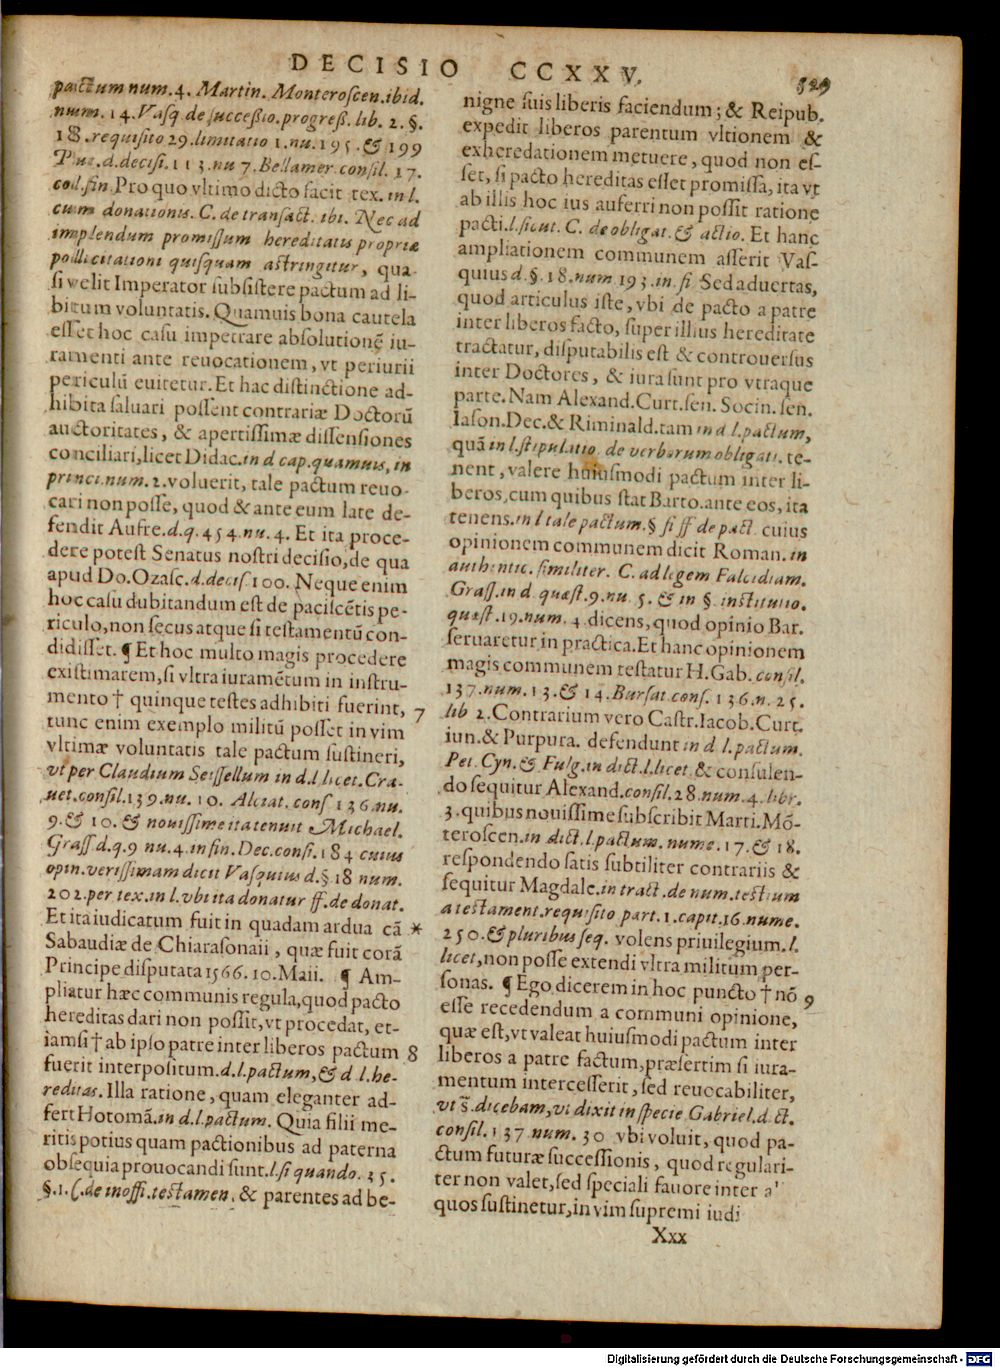 DECISIO CCXXV. 529
pactum num. 4. Martin. Monteroscen. ibid.
num. 14. Vasq de successio. progreß. lib. 2. §.
18. requisito 29. limitatio 1. nu. 195. & 199
Put. d. decisi. 113. nu 7. Bellamer consil. 17.
col. fin. Pro quo vltimo dicto facit tex. in l.
cum donationis. C. de transact. ibi. Nec ad
implendum promissum hereditatis propriæ
pollicitationi quisquam astringitur, qua-
si velit Imperator subsistere pactum ad li-
bitum voluntatis. Quamuis bona cautela
esset hoc casu impetrare absolutionē iu-
ramenti ante reuocationem, vt periurii
periculū euitetur. Et hac distinctione ad-
hibita saluari possent contrariæ Doctorū
auctoritates, & apertissimæ dissensiones
conciliari, licet Didac. in d cap. quamuis, in
princi. num. 2. voluerit, tale pactum reuo-
cari non posse, quod & ante eum late de-
fendit Aufre. d. q. 454. nu. 4. Et ita proce-
dere potest Senatus nostri decisio, de qua
apud Do. Ozasc. d. decis. 100. Neque enim
hoc casu dubitandum est de paciscētis pe-
riculo, non secus atque si testamentū con-
didisset. ¶ Et hoc multo magis procedere
existimarem, si vltra iuramētum in instru-
mento † quinque testes adhibiti fuerint, 7
tunc enim exemplo militū posset in vim
vltimæ voluntatis tale pactum sustineri,
vt per Claudium Seissellum in d. l licet. Cra-
uet. consil. 139. nu. 10. Alciat. cons 136. nu.
9. & 10. & nouissime ita tenuit Michael.
Grass. d. q. 9 nu. 4. in fin. Dec. consi. 184 cuius
opin. verissimam dicit Vasquius d. §. 18 num.
202. per tex. in l. vbi ita donatur ff. de donat.
Et ita iudicatum fuit in quadam ardua cā *
Sabaudiæ de Chiarasonaii, quæ fuit corā
Principe disputata 1566. 10. Maii. ¶ Am-
pliatur hæc communis regula, quod pacto
hereditas dari non possit, vt procedat, et-
iamsi † ab ipso patre inter liberos pactum 8
fuerit interpositum. d. l. pactum, & d l. he-
reditas. Illa ratione, quam eleganter ad-
fert Hotomā. in d. l. pactum. Quia filii me-
ritis potius quam pactionibus ad paterna
obsequia prouocandi sunt. l. si quando. 35.
§. 1. C. de inoffi. testamen. & parentes ad be-
nigne suis liberis faciendum; & Reipub.
expedit liberos parentum vltionem &
exheredationem metuere, quod non es-
set, si pacto hereditas esset promissa, ita vt
ab illis hoc ius auferri non possit ratione
pacti. l. sicut. C. de obligat. & actio. Et hanc
ampliationem communem asserit Vas-
quius d. §. 18. num 193. in. fi Sed aduertas,
quod articulus iste, vbi de pacto a patre
inter liberos facto, super illius hereditate
tractatur, disputabilis est & controuersus
inter Doctores, & iura sunt pro vtraque
parte. Nam Alexand. Curt. sen. Socin. sen.
Iason. Dec. & Riminald. tam in d l. pactum,
quā in l. stipulatio de verborum obligati. te-
nent, valere huiusmodi pactum inter li-
beros, cum quibus stat Barto. ante eos, ita
tenens. in l tale pactum. § fi ff de pact. cuius
opinionem communem dicit Roman. in
authentic. similiter. C. ad legem Falcidiam.
Grass. in d. quæst. 9. nu. 5. & in § institutio.
quæst. 19. num. 4. dicens, quod opinio Bar.
seruaretur in practica. Et hanc opinionem
magis communem testatur H. Gab. consil.
137. num. 13. & 14. Bursat. cons. 136. n. 25.
lib 2. Contrarium vero Castr. Iacob. Curt.
iun. & Purpura. defendunt in d l. pactum.
Pet. Cyn. & Fulg. in dict. l. licet & consulen-
do sequitur Alexand. consil. 28. num. 4. libr.
3. quibus nouissime subscribit Marti. Mō-
teroscen. in dict. l. pactum. nume. 17. & 18.
respondendo satis subtiliter contrariis &
sequitur Magdale. in tract. de num. testium
a testament. requisito part. 1. capit. 16. nume.
250. & pluribus seq. volens priuilegium. l.
licet, non posse extendi vltra militum per-
sonas. ¶ Ego dicerem in hoc puncto † nō 9
esse recedendum a communi opinione,
quæ est, vt valeat huiusmodi pactum inter
liberos a patre factum, præsertim si iura-
mentum intercesserit, sed reuocabiliter,
vt s̄. dicebam, vt dixit in specie Gabriel. d. ct.
consil. 137 num. 30 vbi voluit, quod pa-
ctum futuræ successionis, quod regulari-
ter non valet, sed speciali fauore inter a
quos sustinetur, in vim supremi iudi
Xxx
Digitalisierung gefördert durch die Deutsche Forschungsgemeinschaft - DFG